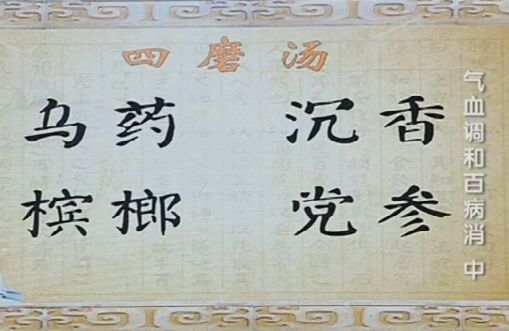 四磨汤
乌药 沉香
槟榔 党参
气血调和百病消 中